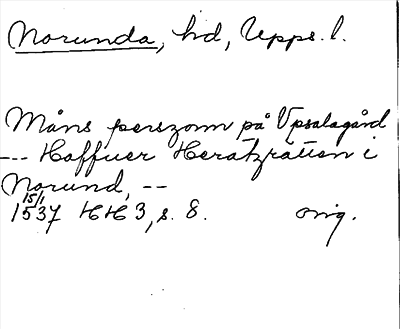 Norunda, hd, Upps. l.
Måns perszonn på Vpsalagård
-- Haffuer Heratzrätten i
Norund, --
15/1
1537 HH 3, s. 8. orig.